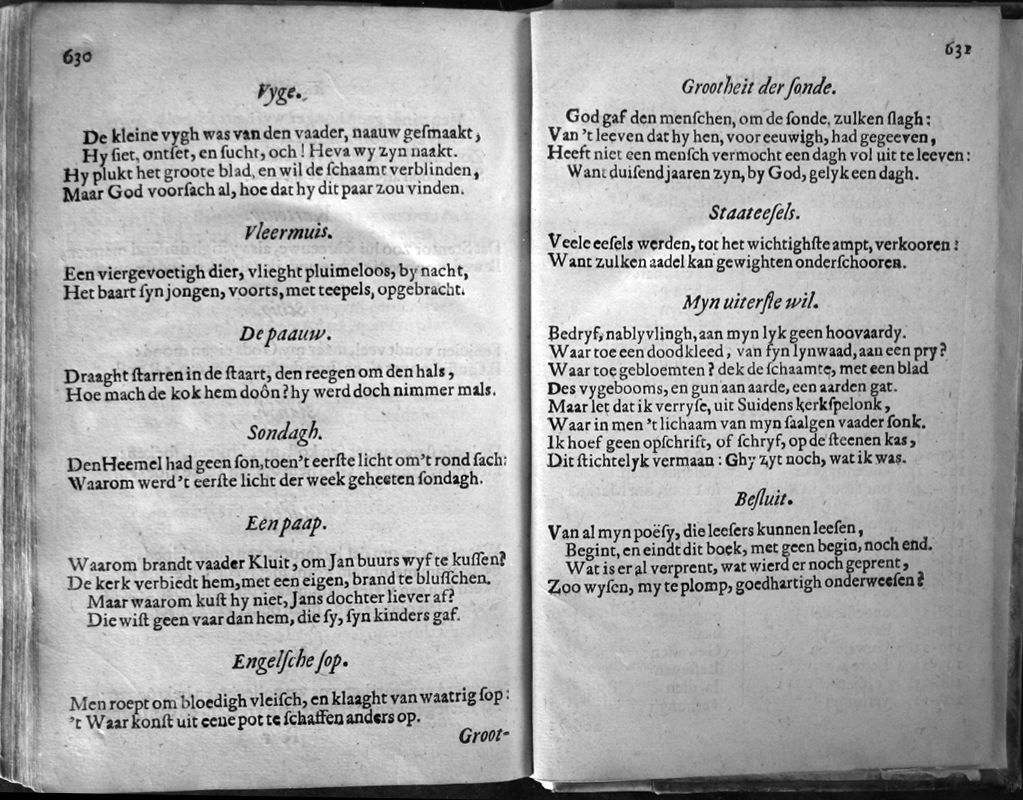 630
Vyge.
De kleine vygh was van den vaader, naauw geſmaakt,
Hy ſiet, ontſet, en ſucht, och! Heva wy zyn naakt.
Hy plukt het groote blad, en wil de ſchaamt verblinden,
Maar God voorſach al, hoe dat hy dit paar zou vinden.
Vleermuis.
Een viergevoetigh dier, vlieght pluimeloos, by nacht,
Het baart ſyn jongen, voorts, met teepels, opgebracht.
De paauw.
Draaght ſtarren in de ſtaart, den reegen om den hals,
Hoe mach de kok hem doôn? hy werd doch nimmer mals.
Sondagh.
Den Heemel had geen ſon, toen't eerſte licht om't rond ſach:
Waarom werd't eerſte licht der week geheeten ſondagh.
Een paap.
Waarom brandt vaader Kluit, om Jan buurs wyf te kuſſen?
De kerk verbiedt hem, met een eigen, brand te bluſſchen.
Maar waarom kuſt hy niet, Jans dochter liever af?
Die wiſt geen vaar dan hem, die ſy, ſyn kinders gaf.
Engelſche ſop.
Men roept om bloedigh vleiſch, en klaaght van waatrig ſop:
't Waar konſt uit eene pot te ſchaffen anders op.
Groot-
631
Grootheit der ſonde.
God gaf den menſchen, om de ſonde, zulken ſlagh:
Van 't leeven dat hy hen, voor eeuwigh, had gegeeven,
Heeft niet een menſch vermocht een dagh vol uit te leeven:
Want duiſend jaaren zyn, by God, gelyk een dagh.
Staateeſels.
Veele eeſels werden, tot het wichtighſte ampt, verkooren:
Want zulken aadel kan gewighten onderſchooren.
Myn uiterſte wil.
Bedryf, nablyvlingh, aan myn lyk geen hoovaardy.
Waar toe een doodkleed, van fyn lynwaad, aan een pry?
Waar toe gebloemten? dek de ſchaamte, met een blad
Des vygebooms, en gun aan aarde, een aarden gat.
Maar let dat ik verryſe, uit Suidens kerkſpelonk,
Waar in men 't lichaam van myn ſaalgen vaader ſonk.
Ik hoef geen opſchrift, of ſchryf, op de ſteenen kas,
Dit ſtichtelyk vermaan: Ghy zyt noch, wat ik was.
Beſluit.
Van al myn poëſy, die leeſers kunnen leeſen,
Begint, en eindt dit boek, met geen begin, noch end.
Wat is er al verprent, wat wierd er noch geprent,
Zoo wyſen, my te plomp, goedhartigh onderweeſen?